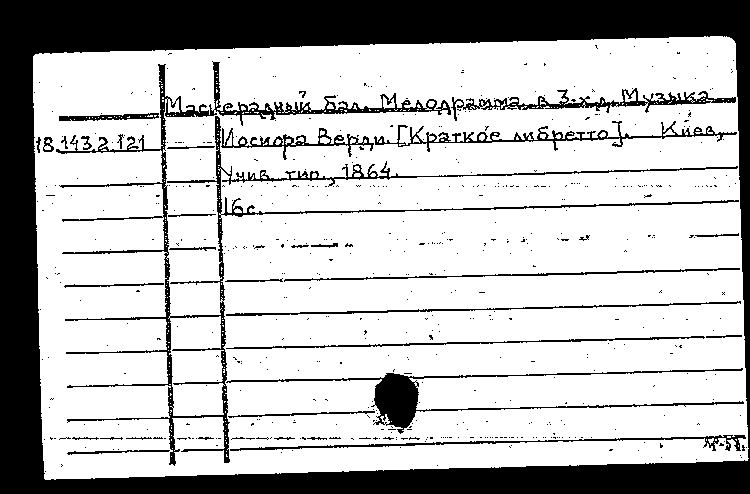 Маскерадный бал. Мелодрамма в 3-х д. Музыка
18.143.2.121 Иосифа Верди. [Краткое либретто]. Киев,
Унив. тип., 1864.
16 с.